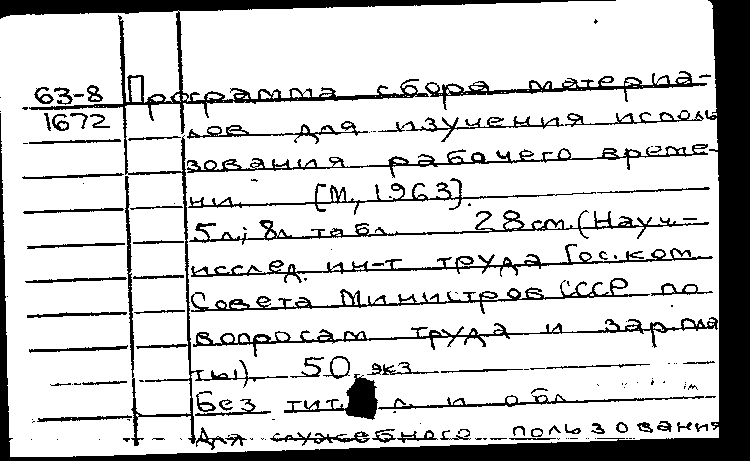 63-8 Программа сбора материа-
1672 лов для изучения исполь
зования рабочего време-
ни. [М., 1963].
5 л.; 8 л. табл. 28 см. (Науч.-
исслед. ин-т труда Гос. ком.
Совета Министров СССР по
вопросам труда и зар.пла
ты). 50 экз.
Без тит. л. и обл.
Для служебного пользования